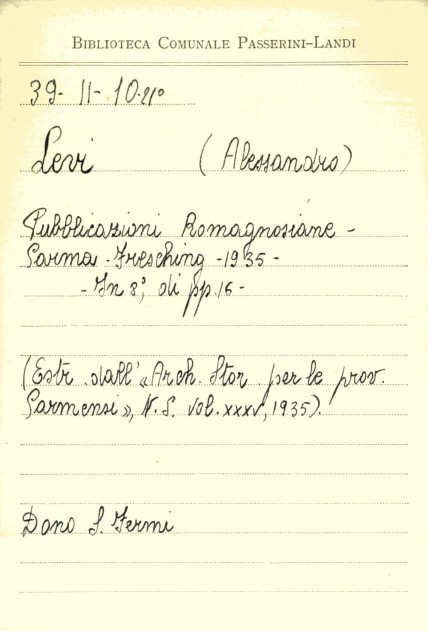 BIBLIOTECA COMUNALE PASSERINI-LANDI
39- 11- 10.21º
Levi (Alessandro)
Pubblicazioni Romagnosiane -
Parma - Fresching - 1935 -
- In 8º, di pp. 16 -
(Estr. dall' «Arch. Stor. per le prov.
Parmensi», N. S. vol. XXXV, 1935).
Dono S. Fermi